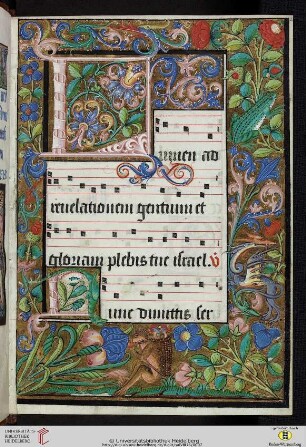 Lumen ad
reuelationem gentium et
gloriam plebis tue israel. V
Nunc dimittis ser
UNIVERSITÄTS-
BIBLIOTHEK
HEIDELBERG
© Universitätsbibliothek Heidelberg